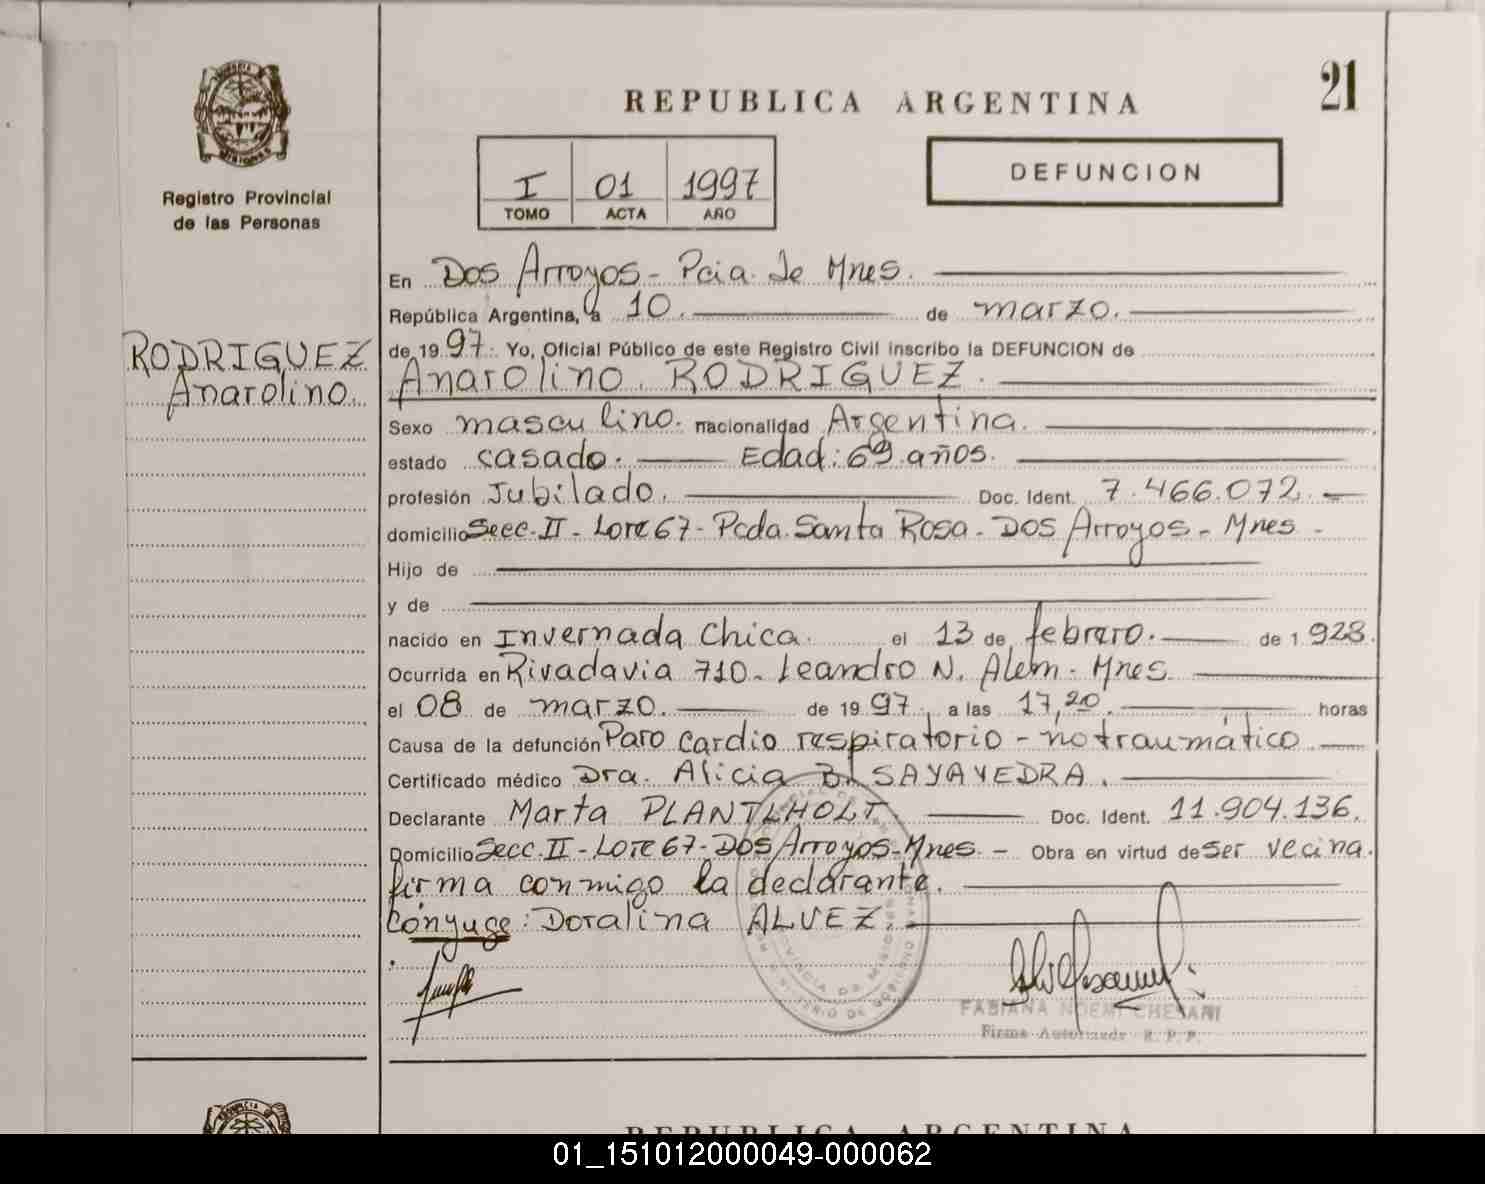 21
REPUBLICA ARGENTINA
PROVINCIA DE
MISIONES
Registro Provincial
de las Personas
I 01 1997
TOMO ACTA AÑO
DEFUNCION
En Dos Arroyos - Pcia. de Mnes.
República Argentina, a 10. de marzo.
RODRIGUEZ
Anarolino.
de 19 97. Yo, Oficial Público de este Registro Civil inscribo la DEFUNCION de
Anarolino. RODRIGUEZ.
Sexo masculino. nacionalidad Argentina.
estado casado. Edad: 69 años.
profesión Jubilado. Doc. Ident. 7.466.072.
domicilio Secc. II - Lote 67 - Pcda. Santa Rosa - Dos Arroyos - Mnes -
Hijo de
y de
nacido en Invernada Chica. el 13 de febrero. de 1 928.
Ocurrida en Rivadavia 710 - Leandro N. Alem - Mnes.
el 08 de marzo. de 19 97. a las 17,20. horas
Causa de la defunción Paro cardio respiratorio - no traumático
Certificado médico Dra. Alicia B. SAYAVEDRA.
Declarante Marta PLANTLHOLT Doc. Ident. 11.904.136.
Domicilio Secc. II - Lote 67 - Dos Arroyos - Mnes. - Obra en virtud de ser vecina.
firma conmigo la declarante.
Cónyuge: Doralina ALVEZ.
FABIANA NOEMI CHESANI
Firma Autorizada R. P. P.
REPUBLICA ARGENTINA
01_151012000049-000062